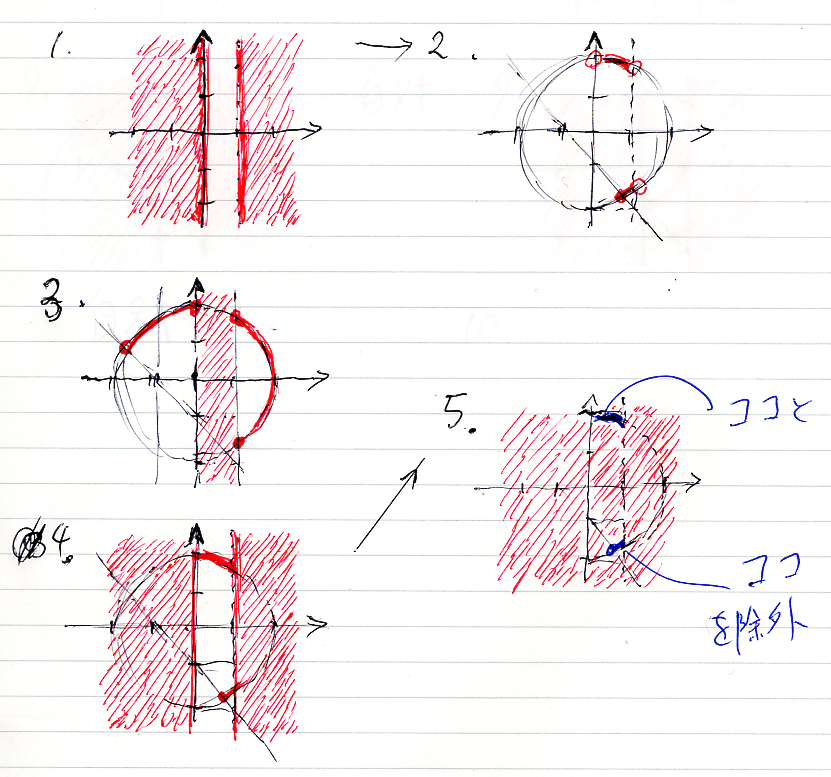 1.
2.
3.
4.
5.
ココと
ココ
を除外